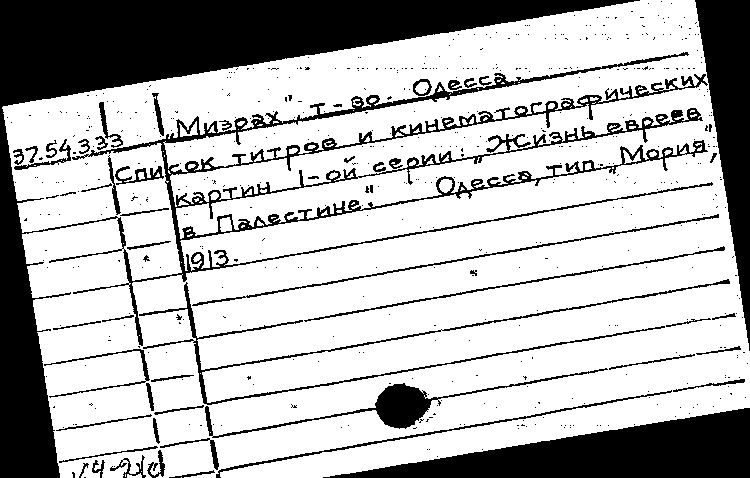 „Мизрах", т-во. Одесса.
37.54.3.33
Список титров и кинематографических
картин 1-ой серии: „Жизнь евреев
в Палестине". Одесса, тип. „Мория",
1913.